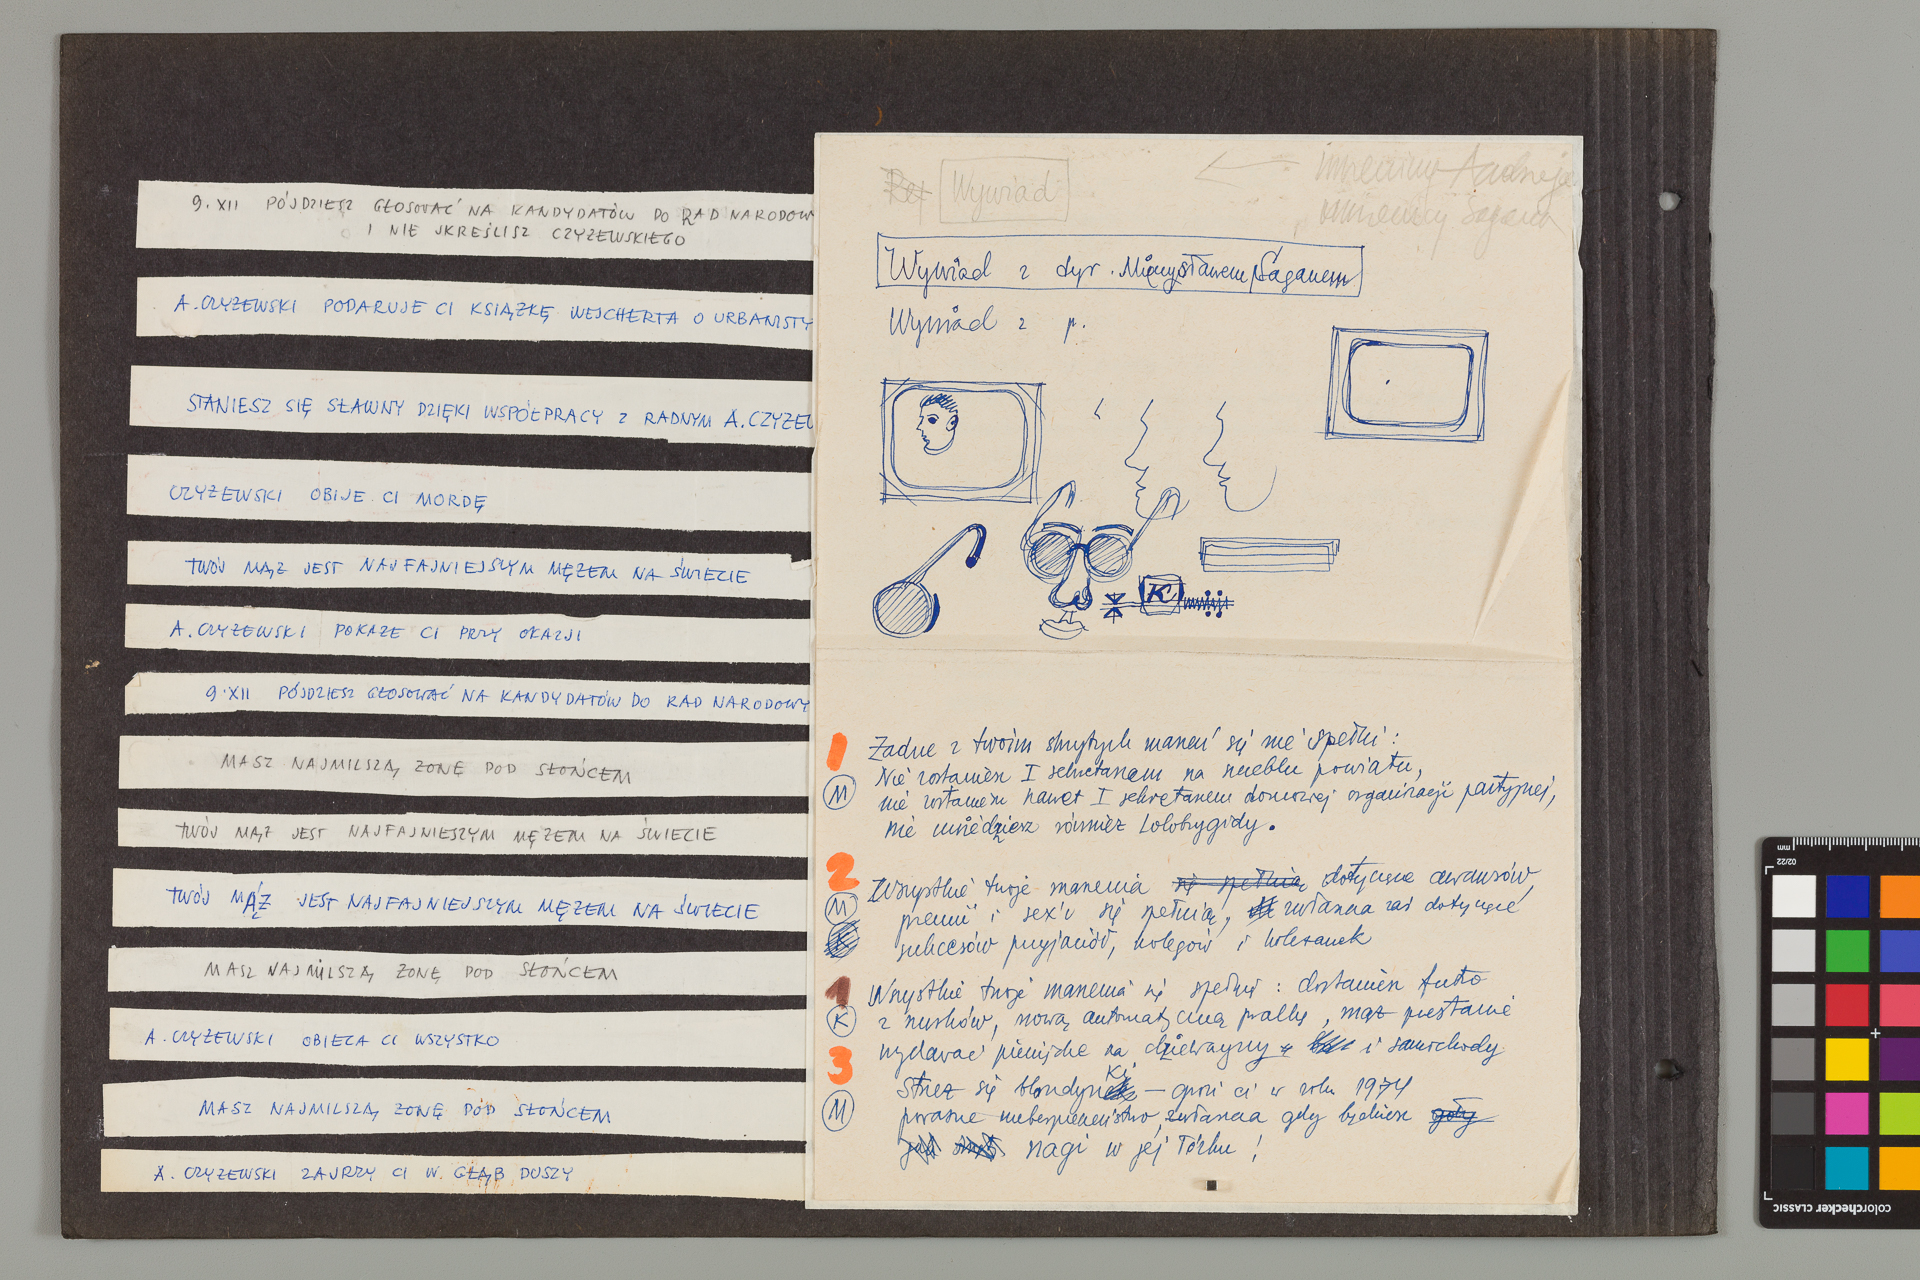 9. XII PÓJDZIESZ GŁOSOWAĆ NA KANDYDATÓW DO RAD NARODOW
I NIE SKREŚLISZ CZYŻEWSKIEGO
A. CZYŻEWSKI PODARUJE CI KSIĄŻKĘ WEJCHERTA O URBANISTY
STANIESZ SIĘ SŁAWNY DZIĘKI WSPÓŁPRACY Z RADNYM A. CZYŻEW
CZYŻEWSKI OBIJE CI MORDĘ
TWÓJ MĄŻ JEST NAJFAJNIEJSZYM MĘŻEM NA ŚWIECIE
A. CZYŻEWSKI POKAŻE CI PRZY OKAZJI
9. XII PÓJDZIESZ GŁOSOWAĆ NA KANDYDATÓW DO RAD NARODOWY
MASZ NAJMILSZĄ ŻONĘ POD SŁOŃCEM
TWÓJ MĄŻ JEST NAJFAJNIESZYM MĘŻEM NA ŚWIECIE
TWÓJ MĄŻ JEST NAJFAJNIEJSZYM MĘŻEM NA ŚWIECIE
MASZ NAJMILSZĄ ŻONĘ POD SŁOŃCEM
A. CZYŻEWSKI OBIECA CI WSZYSTKO
MASZ NAJMILSZĄ ŻONĘ POD SŁOŃCEM
A. CZYŻEWSKI ZAJRZY CI W GŁĄB DUSZY
Wywiad
Wywiad z dyr. Mieczysławem Saganem
Wywiad z p.
K
1 Żadne z twoim skrytych marzeń się nie spełni:
Nie zostaniesz I sekretarzem na szczeblu powiatu,
M nie zostaniesz nawet I sekretarzem domowej organizacji partyjnej,
nie uwiedziesz również Lolobrygidy.
2 Wszystkie twoje marzenia się spełnią dotyczące awansów,
M premii i sex'u się spełnią, zwłaszcza zaś dotyczące
K sukcesów przyjaciół, kolegów i koleżanek
1 Wszystkie twoje marzenia się spełnią: dostaniesz futro
K z nurków, nową automatyczną pralkę, mąż przestanie
wydawać pieniądze na dziewczyny i samochody
3 Strzeż się blondynki — grozi ci w roku 1974
M poważne niebezpieczeństwo, zwłaszcza gdy będziesz goły
nagi w jej łóżku!
mm
colorchecker CLASSIC